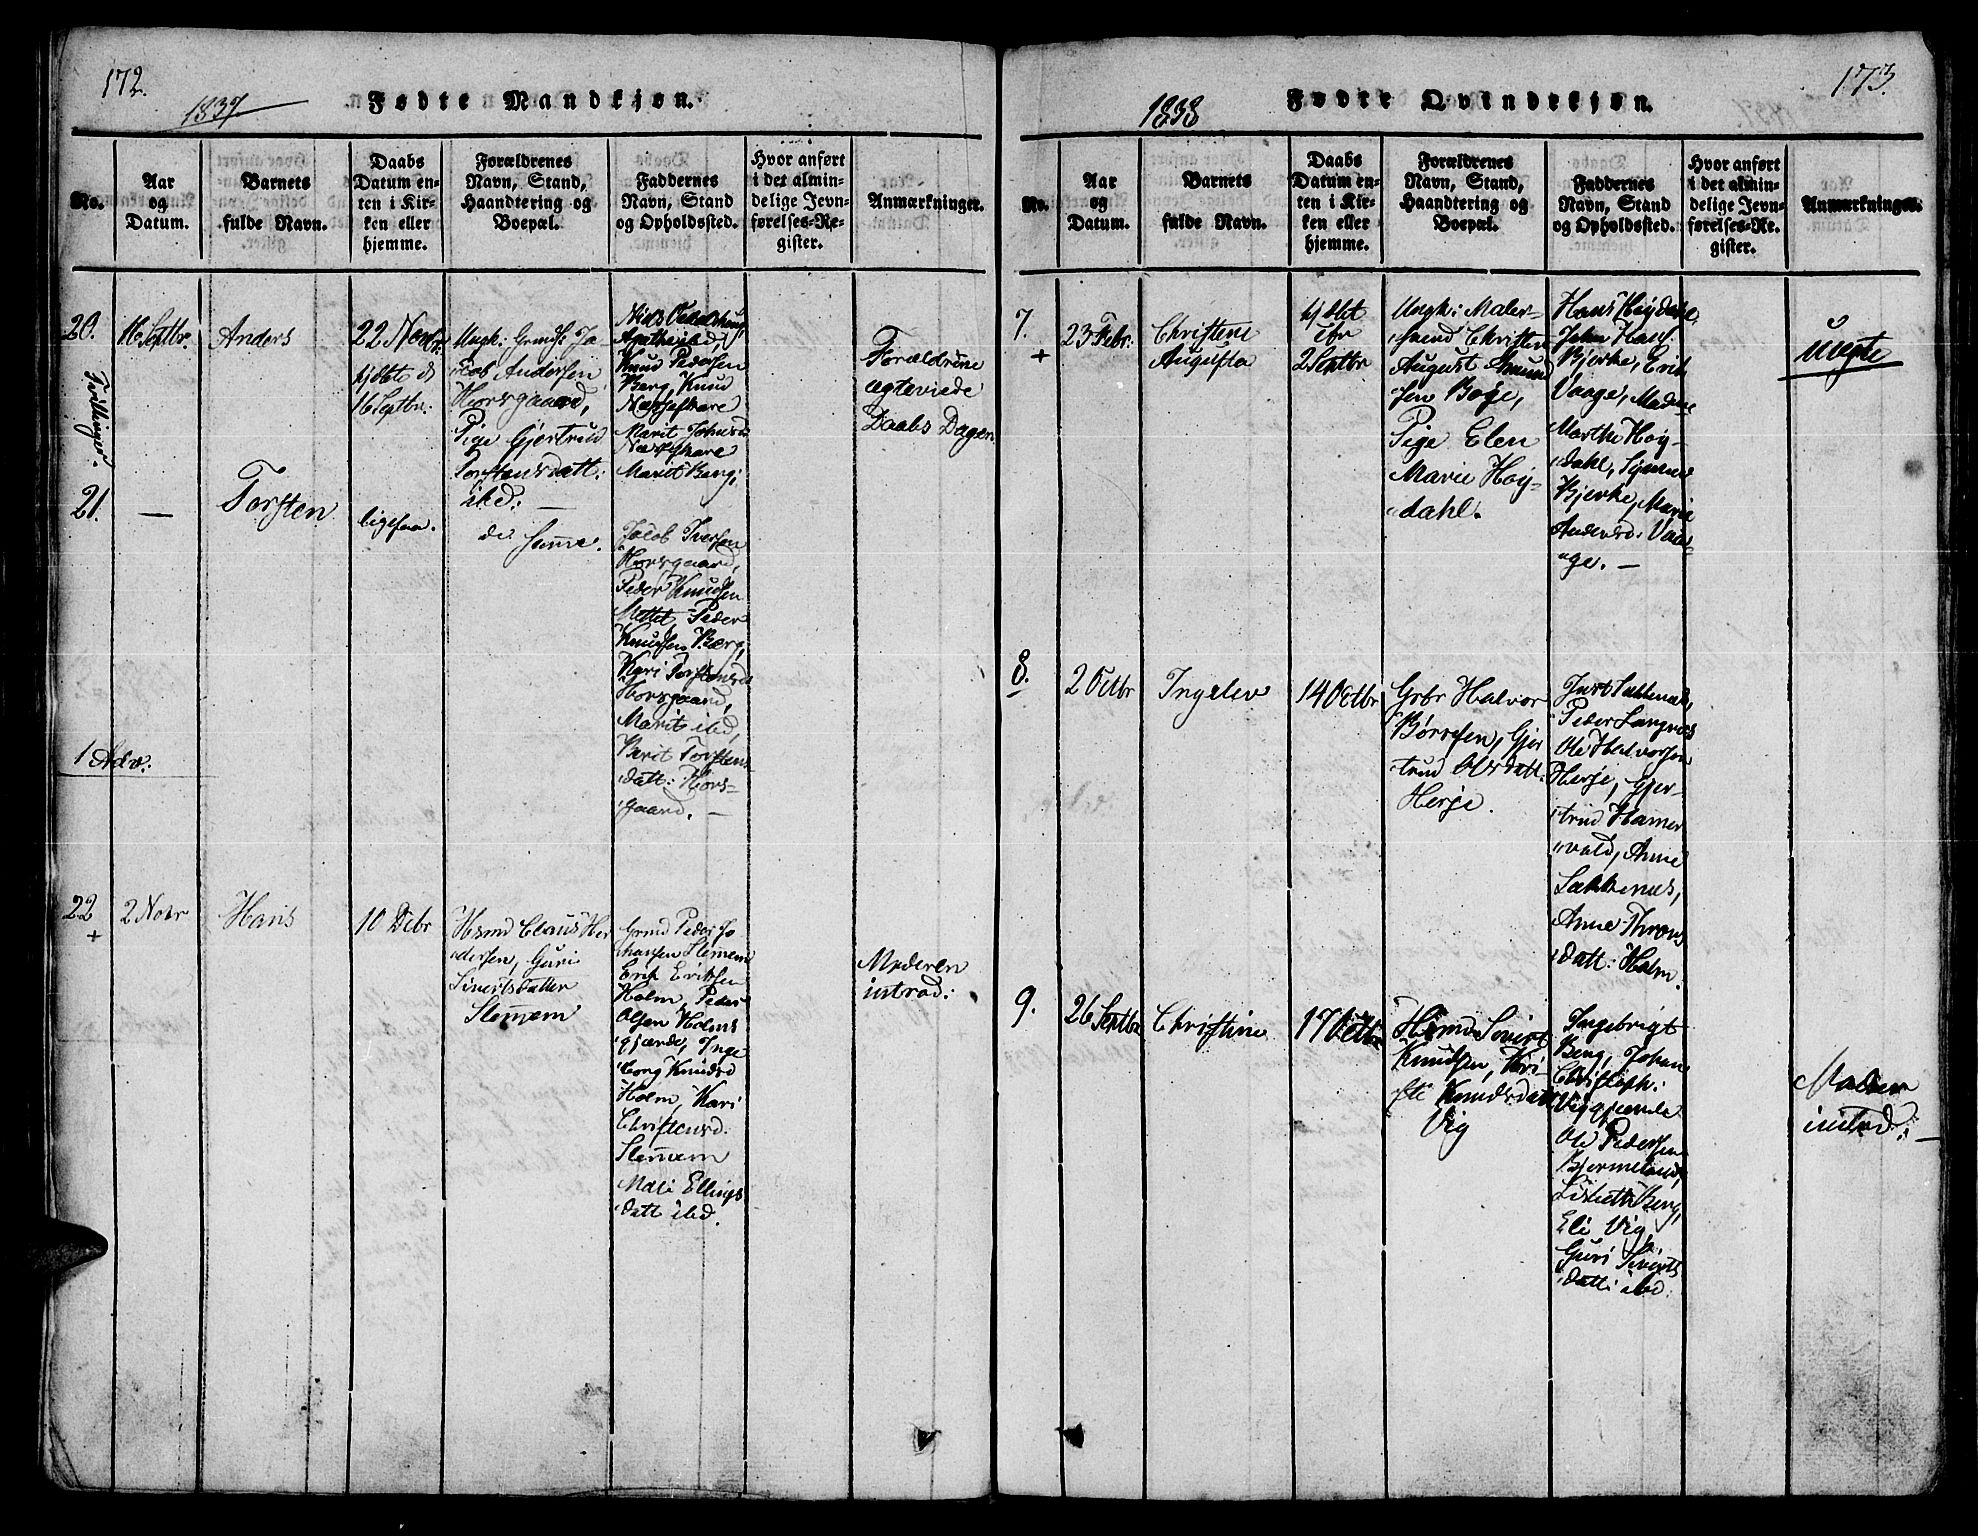 172.
1837
Fødte Mandkjøn.
No.
Aar
og
Datum.
Barnets
fulde Navn.
Daabs
Datum en-
ten i Kir-
ken eller
hjemme.
Forældrenes
Navn, Stand,
Haandtering og
Boepæl.
Faddernes
Navn, Stand
og Opholdssted.
Hvor anført
i det almin-
delige Jevn-
førelses-Re-
gister.
Anmærkninger.
20.
16 Septbr.
Anders
22 Novbr.
hjdbte d
16 Septbr:
Ungk: Grmds: Ja
cob Andersen
Horsgaard,
Pige Gjertrud
Torstensdatt:
ibd:
Knud Pedersen
Berg, Knud
Næsseskare
Marit Johnsd
Næsseskare
Marit Berg.
Forældrene
egteviede
Daabs Dagen
Tvillinger.
21.
—
Torsten
ligesaa.
de samme.
Jacob Iversen
Horsgaard,
Peder Knudsen
Mettet, Peder
Knudsen Berg,
Kari Torstensd
Horsgaard,
Marit ibd,
Berit Torstens
datt: Hors-
gaard. —
1 Adv:
22
+
2 Novr
Hans
10 Debr
Hsmd Claus Her
dersen, Guri
Sivertsdatter
Slemem
Grmd Peder Jo
hansen Slemem
Erik Eriksen
Holm, Peder
Olsen Holms
gjærde, Inge
borg Knudsd
Holm, Kari
Christensd:
Slemem
Mali Ellings
datt ibd.
Moderen
introd:
173.
1838
Fødte Qvindekjøn.
No.
Aar
og
Datum.
Barnets
fulde Navn.
Daabs
Datum en-
ten i Kir-
ken eller
hjemme.
Forældrenes
Navn, Stand,
Haandtering og
Boepæl.
Faddernes
Navn, Stand
og Opholdssted.
Hvor anført
i det almin-
delige Jevn-
førelses-Re-
gister.
Anmærkninger.
7.
+
23 Febr.
Christine
Augusta
2 Septbr
Ungk: Maler-
svend Christen
August Amund
sen Boge,
Pige Elen
Marie Høy-
dahl.
Hans Høydahl
John Hans.
Bjerke, Erik
Vaage, Madme
Marthe Høy-
dahl,
Bjerke, Marie
Andersd: Vaa-
age. —
uegte
8.
2 Octbr
Ingelev
14 Octbr
Grbr Halvor
Børresen, Gjer
trud Olsdatt.
Herje.
Just Sækkenæs,
Peder Langnæs
Ole Halvorsen
Herje, Gjer-
trud Hamer
vold, Anne
Sækkenæs,
Anne Throns
datt: Holm.
9.
26 Septbr
Christine
17 Octbr
Hsmd Sivert
Knudsen, Kri-
sti Knudsdatt
Vig
Ingebrigt
Berg, Johan
Christoph:
Viggjærde
Ole Pedersen
Bjermeland,
Lisbeth Berg,
Eli Vig,
Guri Siverts
datt: ibd:
Moder
introd: —